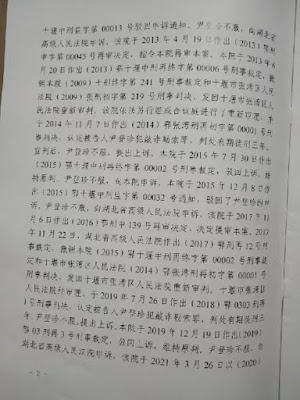 十堰中刑监字第00013号驳回申诉通知。尹登珍不服,向湖北省
高级人民法院申诉,该院于2013年4月19日作出(2013)鄂刑
申字第00045号再审决定,指令本院再审本案。本院于2013年6
月20日作出(2013)鄂十堰中刑再终字第00006号刑事裁定,撤
销本院(2009)十刑终字第241号刑事裁定和十堰市张湾区人
民法院(2009)张刑初字第219号刑事判决,发回十堰市张湾区人
民法院重新审判。该院依法另行组成合议庭进行了重新审理,并
于2014年11月7日作出(2014)鄂张湾刑再初字第0001号刑
事判决,认定被告人尹登珍犯敲诈勒索罪,判处有期徒刑三年。
宣判后,尹登珍不服,提出上诉。本院于2015年7月30日作出
(2015)鄂十堰中刑再终字第00002号刑事裁定,驳回上诉,维
持原判。尹登珍不服,向本院申诉,本院于2015年12月8日作
出(2015)鄂十堰中刑监字第00032号通知,驳回了尹登珍的申
诉。尹登珍不服,向湖北省高级人民法院申诉,该院于2017年11
月6日作出(2016)鄂刑申139号再审决定,决定提审本案。2017
年11月22日,湖北省高级人民法院作出(2017)鄂刑再12号刑
事裁定,撤销本院(2015)鄂十堰中刑再终字第00002号刑事裁
定和十堰市张湾区人民法院(2014)鄂张湾刑再初字第0001号
刑事判决,发回十堰市张湾区人民法院重新审判。十堰市张湾区
人民法院经审理,于2019年7月26日作出(2018)鄂0303刑再
1号刑事判决,认定被告人尹登珍犯敲诈勒索罪,判处有期徒刑三
年。尹登珍不服,提出上诉。本院于2019年12月19日作出(2019)
鄂03刑再3号刑事裁定,驳回上诉,维持原判。尹登珍不服,向
湖北省高级人民法院申诉,该院于2021年3月26日以(2020)
- 2 -